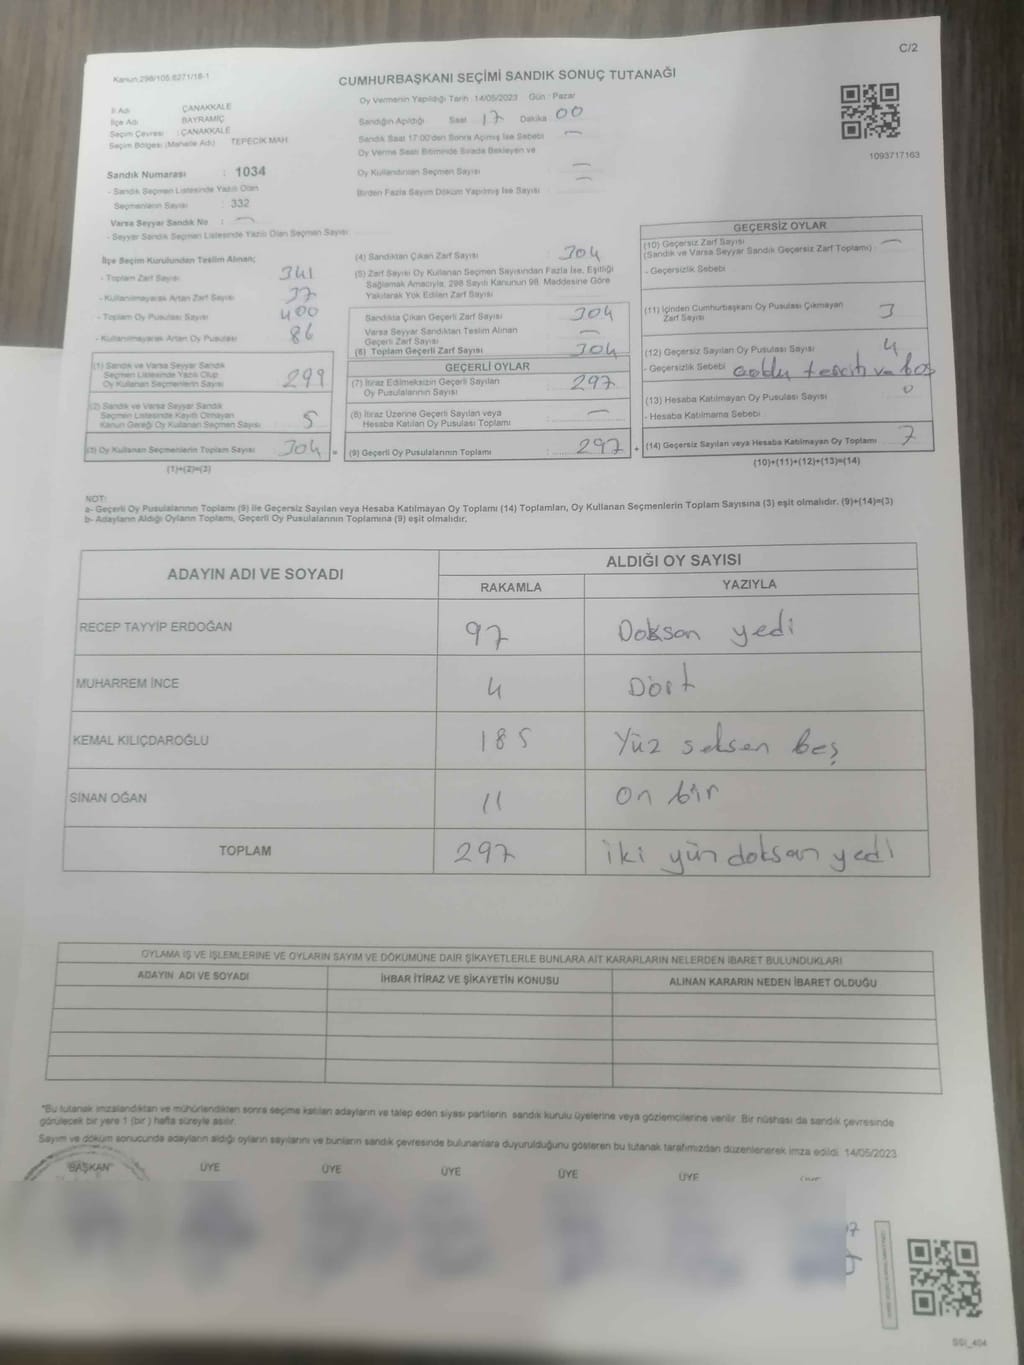 C/2
Kanun:298/105.6271/18-1
CUMHURBAŞKANI SEÇİMİ SANDIK SONUÇ TUTANAĞI
İl Adı : ÇANAKKALE
İlçe Adı : BAYRAMİÇ
Seçim Çevresi : ÇANAKKALE
Seçim Bölgesi (Mahalle Adı) TEPECİK MAH
Sandık Numarası : 1034
- Sandık Seçmen Listesinde Yazılı Olan
Seçmenlerin Sayısı : 332
Varsa Seyyar Sandık No : —
- Seyyar Sandık Seçmen Listesinde Yazılı Olan Seçmen Sayısı
Oy Vermenin Yapıldığı Tarih : 14/05/2023 Gün : Pazar
Sandığın Açıldığı Saat 17 Dakika 00
Sandık Saat 17:00'den Sonra Açılmış İse Sebebi —
Oy Verme Saati Bitiminde Sırada Bekleyen ve
Oy Kullandırılan Seçmen Sayısı —
Birden Fazla Sayım Döküm Yapılmış İse Sayısı —
1093717163
İlçe Seçim Kurulundan Teslim Alınan;
- Toplam Zarf Sayısı 341
- Kullanılmayarak Artan Zarf Sayısı 37
- Toplam Oy Pusulası Sayısı 400
- Kullanılmayarak Artan Oy Pusulası 86
(1) Sandık ve Varsa Seyyar Sandık
Seçmen Listesinde Yazılı Olup
Oy Kullanan Seçmenlerin Sayısı 299
(2) Sandık ve Varsa Seyyar Sandık
Seçmen Listesinde Kayıtlı Olmayan
Kanun Gereği Oy Kullanan Seçmen Sayısı 5
(3) Oy Kullanan Seçmenlerin Toplam Sayısı 304 =
(1)+(2)=(3)
(4) Sandıktan Çıkan Zarf Sayısı : 304
(5) Zarf Sayısı Oy Kullanan Seçmen Sayısından Fazla İse, Eşitliği
Sağlamak Amacıyla, 298 Sayılı Kanunun 98. Maddesine Göre
Yakılarak Yok Edilen Zarf Sayısı
Sandıkta Çıkan Geçerli Zarf Sayısı : 304
Varsa Seyyar Sandıktan Teslim Alınan
Geçerli Zarf Sayısı —
(6) Toplam Geçerli Zarf Sayısı 304
GEÇERLİ OYLAR
(7) İtiraz Edilmeksizin Geçerli Sayılan
Oy Pusulalarının Sayısı : 297
(8) İtiraz Üzerine Geçerli Sayılan veya
Hesaba Katılan Oy Pusulası Toplamı : —
(9) Geçerli Oy Pusulalarının Toplamı : 297 +
GEÇERSİZ OYLAR
(10) Geçersiz Zarf Sayısı —
(Sandık ve Varsa Seyyar Sandık Geçersiz Zarf Toplamı)
- Geçersizlik Sebebi
(11) İçinden Cumhurbaşkanı Oy Pusulası Çıkmayan
Zarf Sayısı 3
(12) Geçersiz Sayılan Oy Pusulası Sayısı 4
- Geçersizlik Sebebi tercih ve boş
(13) Hesaba Katılmayan Oy Pusulası Sayısı 0
- Hesaba Katılmama Sebebi
(14) Geçersiz Sayılan veya Hesaba Katılmayan Oy Toplamı 7
(10)+(11)+(12)+(13)=(14)
NOT:
a- Geçerli Oy Pusulalarının Toplamı (9) ile Geçersiz Sayılan veya Hesaba Katılmayan Oy Toplamı (14) Toplamları, Oy Kullanan Seçmenlerin Toplam Sayısına (3) eşit olmalıdır. (9)+(14)=(3)
b- Adayların Aldığı Oyların Toplamı, Geçerli Oy Pusulalarının Toplamına (9) eşit olmalıdır.
ADAYIN ADI VE SOYADI ALDIĞI OY SAYISI
RAKAMLA YAZIYLA
RECEP TAYYİP ERDOĞAN 97 Doksan yedi
MUHARREM İNCE 4 Dört
KEMAL KILIÇDAROĞLU 185 Yüz seksen beş
SİNAN OĞAN 11 on bir
TOPLAM 297 iki yün doksan yedi
OYLAMA İŞ VE İŞLEMLERİNE VE OYLARIN SAYIM VE DÖKÜMÜNE DAİR ŞİKAYETLERLE BUNLARA AİT KARARLARIN NELERDEN İBARET BULUNDUKLARI
ADAYIN ADI VE SOYADI İHBAR İTİRAZ VE ŞİKAYETİN KONUSU ALINAN KARARIN NEDEN İBARET OLDUĞU
"Bu tutanak imzalandıktan ve mühürlendikten sonra seçime katılan adayların ve talep eden siyasi partilerin sandık kurulu üyelerine veya gözlemcilerine verilir. Bir nüshası da sandık çevresinde
görülecek bir yere 1 (bir ) hafta süreyle asılır.
Sayım ve döküm sonucunda adayların aldığı oyların sayılarını ve bunların sandık çevresinde bulunanlara duyurulduğunu gösteren bu tutanak tarafımızdan düzenlenerek imza edildi. 14/05/2023
BAŞKAN ÜYE ÜYE ÜYE ÜYE ÜYE
SSI_404